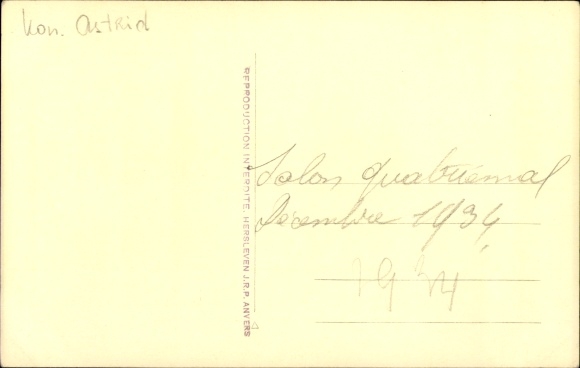 Kon. Astrid
REPRODUCTION INTERDITE, HERSLEVEN J.R.P. ANVERS
Salon quatriennal
Décembre 1934
1934